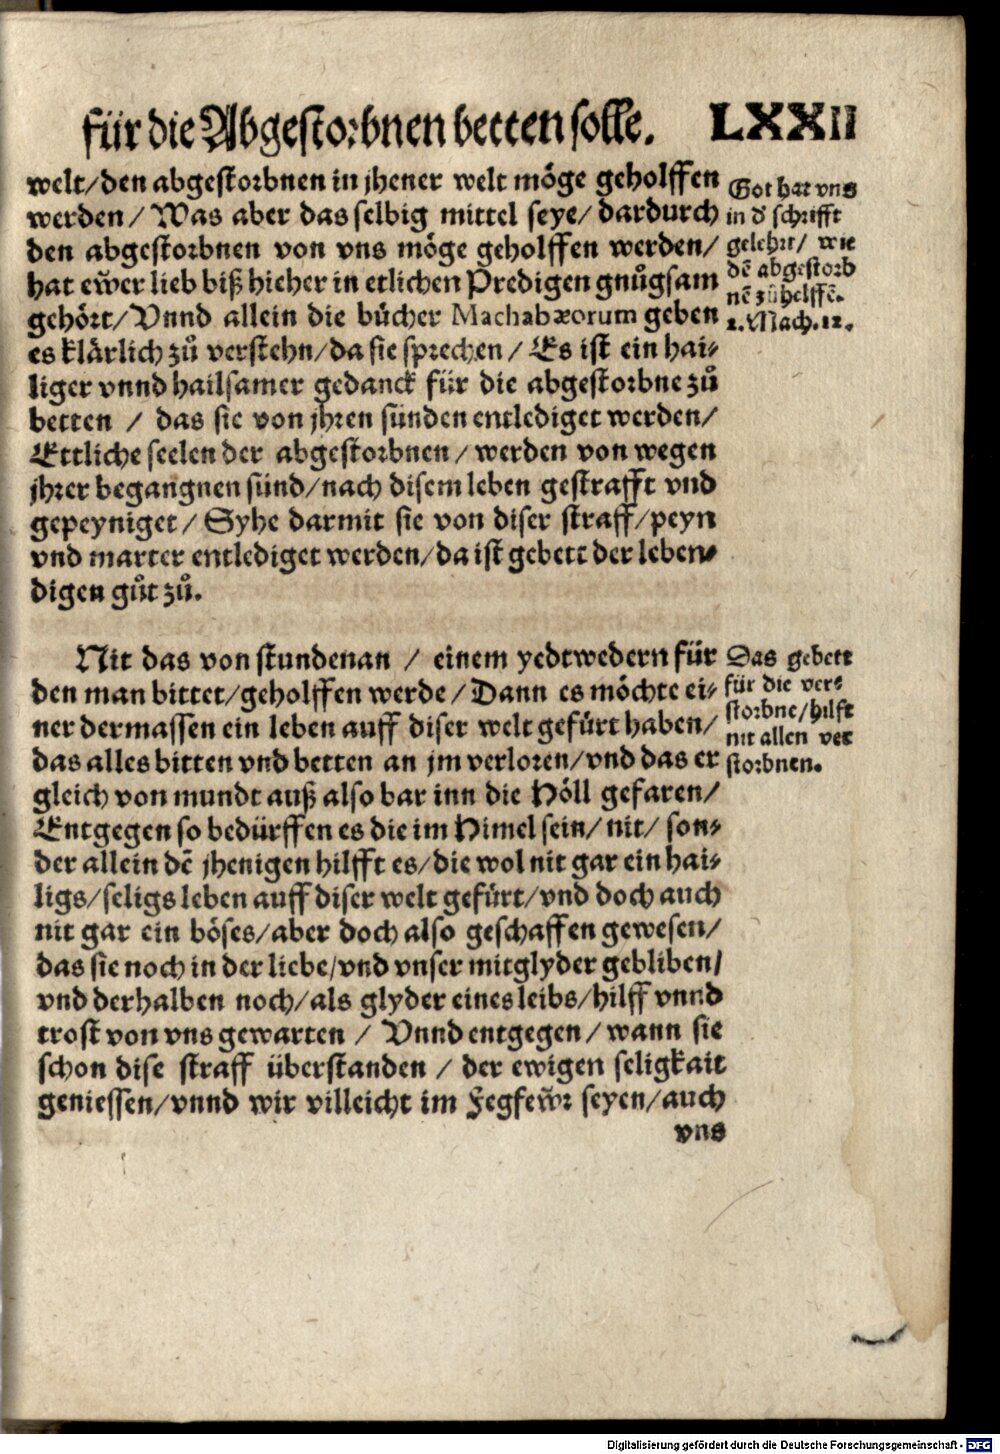 für die Abgestorbnen betten solle. LXXII
welt/den abgestorbnen in jhener welt möge geholffen
werden/ Was aber das selbig mittel seye/ dardurch
den abgestorbnen von vns möge geholffen werden/
hat ewͤer lieb biß hieher in etlichen Predigen gnuͦgsam
gehört/Vnnd allein die buͤcher Machabæorum geben
es klärlich zuͦ verstehn/da sie sprechen/ Es ist ein hai⸗
liger vnnd hailsamer gedanck für die abgestorbne zuͦ
betten / das sie von jhren sünden entlediget werden/
Ettliche seelen der abgestorbnen/ werden von wegen
jhrer begangnen sünd/nach disem leben gestrafft vnd
gepeyniget/ Syhe darmit sie von diser straff/peyn
vnd marter entlediget werden/da ist gebett der leben⸗
digen guͦt zuͦ.
Got hat vns
in d' schrifft
gelehrt/ wie
dē abgestorb
nē zuͦhelffē.
2.Mach.12.
Nit das von stundenan / einem yedtwedern für
den man bittet/geholffen werde/ Dann es möchte ei⸗
ner dermassen ein leben auff diser welt gefürt haben/
das alles bitten vnd betten an jm verloren/vnd das er
gleich von mundt auß also bar inn die Höll gefaren/
Entgegen so bedürffen es die im Himel sein/ nit/ son⸗
der allein dē jhenigen hilfft es/die wol nit gar ein hai⸗
ligs/seligs leben auff diser welt gefürt/vnd doch auch
nit gar ein böses/aber doch also geschaffen gewesen/
das sie noch in der liebe/vnd vnser mitglyder gebliben/
vnd derhalben noch/als glyder eines leibs/hilff vnnd
trost von vns gewarten / Vnnd entgegen/ wann sie
schon dise straff überstanden / der ewigen seligkait
geniessen/vnnd wir villeicht im Fegfewͤr seyen/auch
vns
Das gebett
für die ver⸗
storbne/hilft
nit allen ver
storbnen.
Digitalisierung gefördert durch die Deutsche Forschungsgemeinschaft - DFG